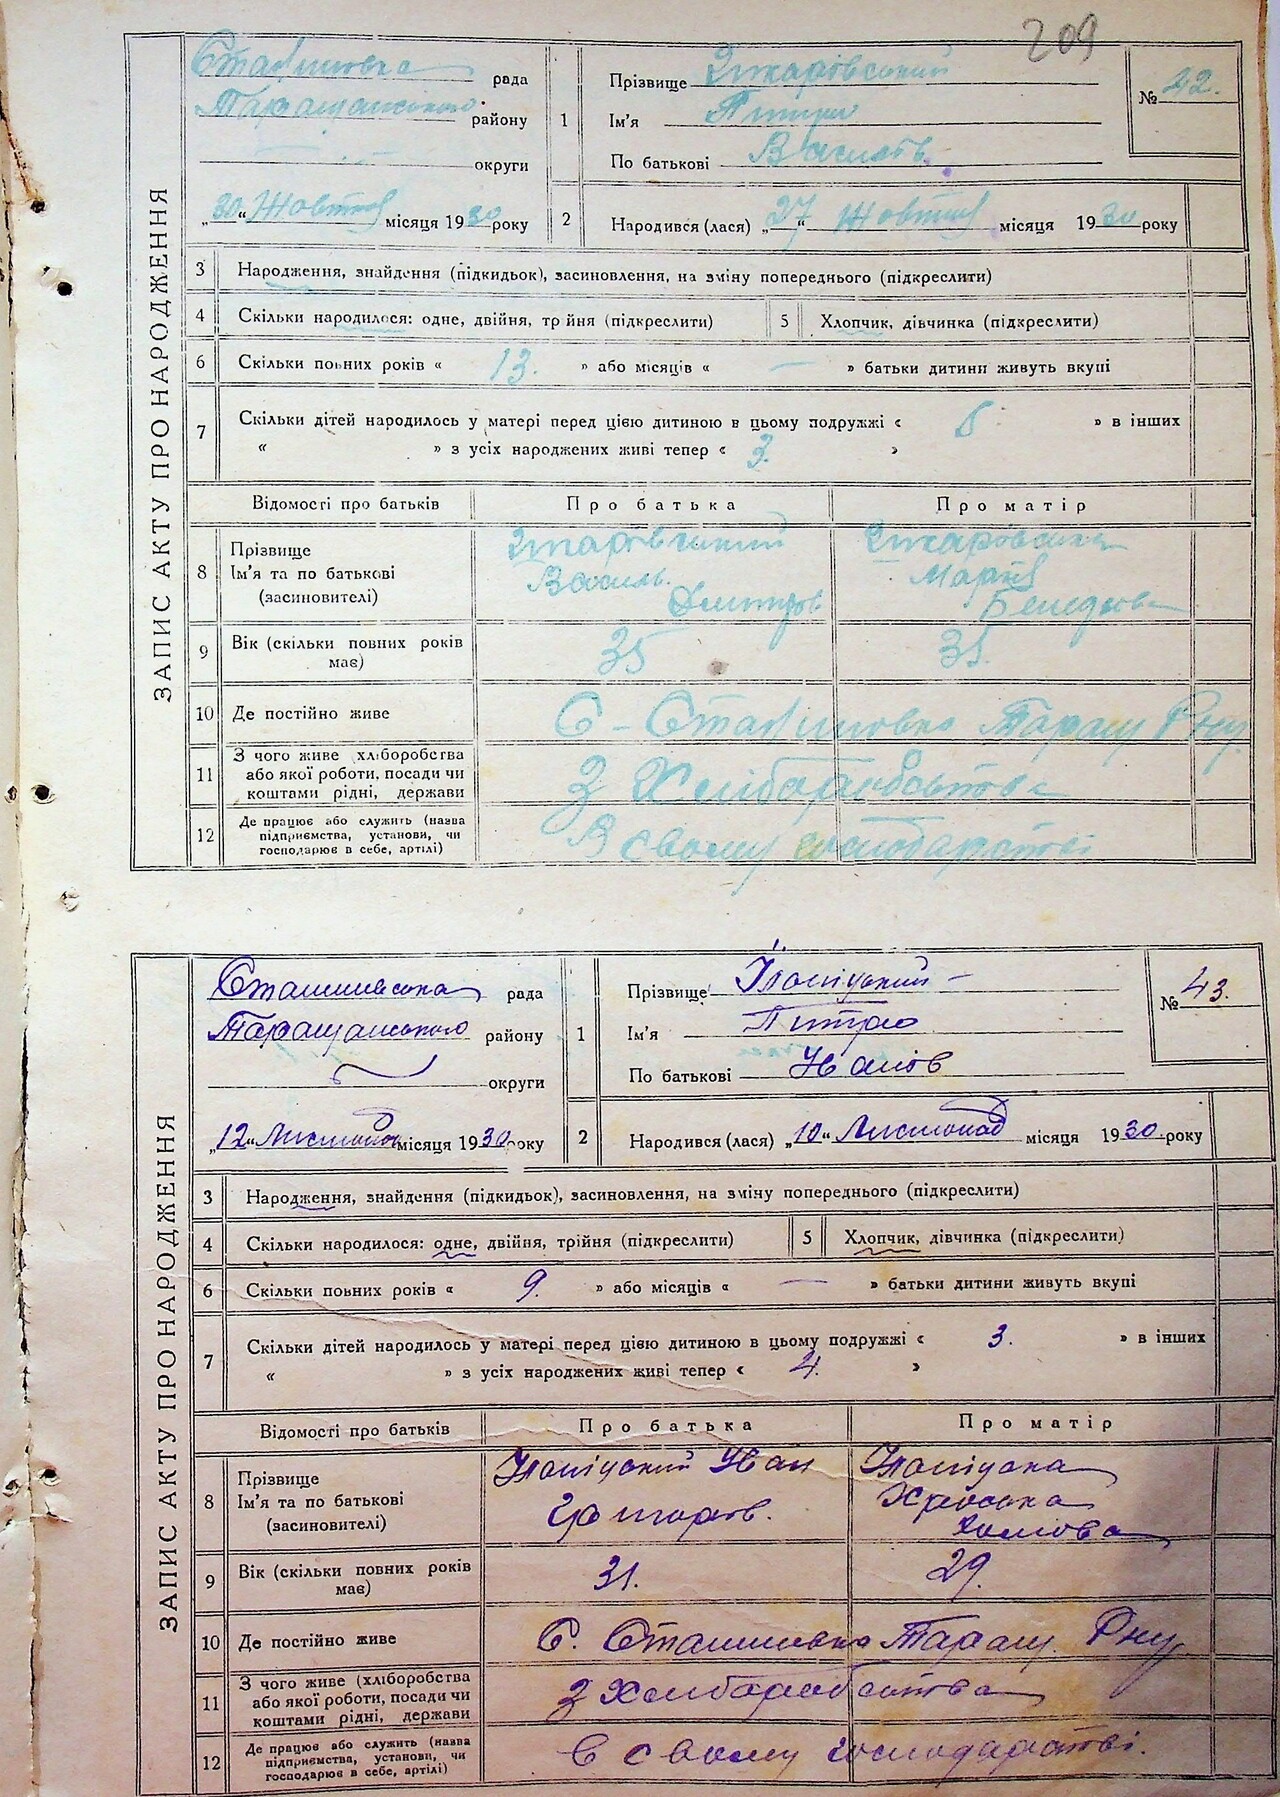 209
ЗАПИС АКТУ ПРО НАРОДЖЕННЯ
рада
Таращанського району
округи
„30“ Жовтня місяця 1930 року
1 Прізвище
Ім'я Питро
По батькові Василів
№ 42.
2 Народився (лася) „27“ Жовтня місяця 1930 року
3 Народження, знайдення (підкидьок), засиновлення, на зміну попереднього (підкреслити)
4 Скільки народилося: одне, двійня, трійня (підкреслити) 5 Хлопчик, дівчинка (підкреслити)
6 Скільки повних років « 13. » або місяців « — » батьки дитини живуть вкупі
7 Скільки дітей народилось у матері перед цією дитиною в цьому подружжі « » в інших
« » з усіх народжених живі тепер « 3. »
Відомості про батьків Про батька Про матір
8 Прізвище
Ім'я та по батькові Василь Марія
(засиновителі) Дмитров
9 Вік (скільки повних років має) 35 31.
10 Де постійно живе С - Таращ Рну.
11 З чого живе (хліборобства або якої роботи, посади чи коштами рідні, держави З Хлібаробства
12 Де працює або служить (назва підприємства, установи, чи господарює в себе, артілі) В свому господарстві
ЗАПИС АКТУ ПРО НАРОДЖЕННЯ
рада
Таращанського району
округи
„12“ Листопада місяця 1930 року
1 Прізвище
Ім'я Питро
По батькові Иванів
№ 43.
2 Народився (лася) „10“ Листопад місяця 1930 року
3 Народження, знайдення (підкидьок), засиновлення, на зміну попереднього (підкреслити)
4 Скільки народилося: одне, двійня, трійня (підкреслити) 5 Хлопчик, дівчинка (підкреслити)
6 Скільки повних років « 9. » або місяців « — » батьки дитини живуть вкупі
7 Скільки дітей народилось у матері перед цією дитиною в цьому подружжі « 3. » в інших
« » з усіх народжених живі тепер « 4. »
Відомості про батьків Про батька Про матір
8 Прізвище Иван
Ім'я та по батькові
(засиновителі) Хомова
9 Вік (скільки повних років має) 31. 29.
10 Де постійно живе С. Таращ. Рну.
11 З чого живе (хліборобства або якої роботи, посади чи коштами рідні, держави З Хлібаробства
12 Де працює або служить (назва підприємства, установи, чи господарює в себе, артілі) в свому господарстві.